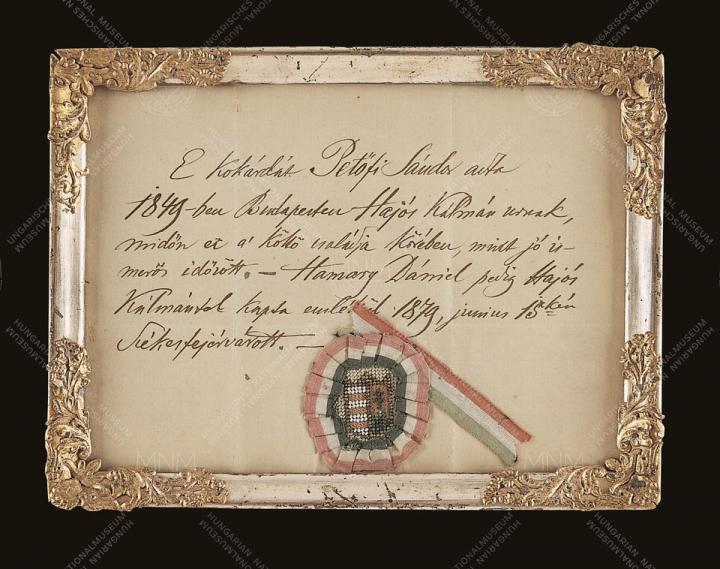 E kokárdát Petőfi Sándor adta
1849-ben Budapesten Hajós Kálmán urnak,
midőn ez a' költő családja körében, mint jó is-
merős időzött. — Hamary Dániel pedig Hajós
Kálmántol kapta emlékül 1879, junius 15-kén
Székesfejérvárott. —
MNM
HUNGARIAN NATIONAL MUSEUM
UNGARISCHES NATIONALMUSEUM